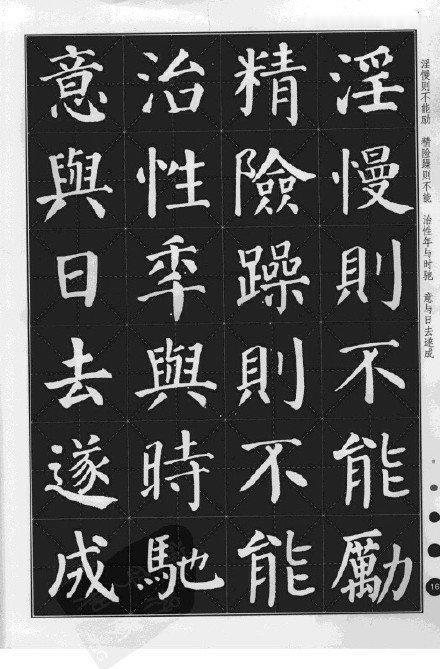 淫慢則不能勵
精險躁則不能
治性秊與時馳
意與日去遂成
淫慢则不能励 精险躁则不能 治性年与时驰 意与日去遂成
16